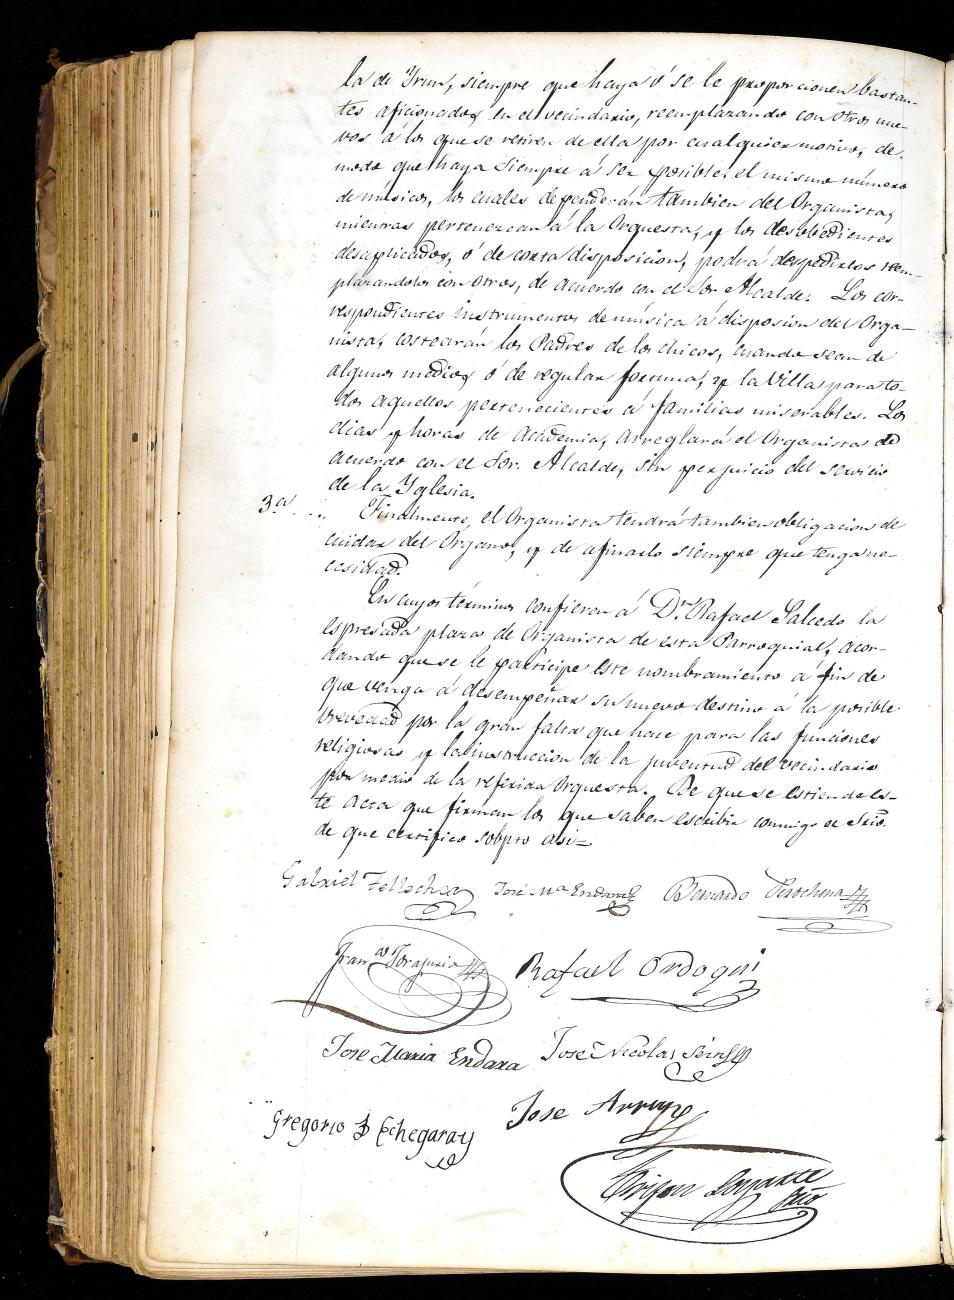 la de Yrun, siempre que haya ó se le proporcionen bastan-
tes aficionados en el vecindario, reemplazando con otros nue-
vos á los que se retiren de ella por cualquier motivo, de
modo que haya siempre á ser posible el mismo número
de músicos, los cuales dependerán tambien del Organista,
mientras pertenezcan á la Orquesta, y los desobedientes
desaplicados, ó de corta disposicion, podrá despedirlos reem-
plazandolos con otros, de acuerdo con el Sor Alcalde. Los cor-
respondientes instrumentos de música á disposion del Orga-
nista, costearán los Padres de los chicos, cuando sean de
algunos medios ó de regular fortuna, y la Villa para to-
dos aquellos pertenecientes á familias miserables. Los
dias y horas de Academia, arreglará el Organista de
acuerdo con el Sor. Alcalde, sin perjuicio del servicio
de la Yglesia.
3ª .. Finalmente, el Organista tendrá tambien obligacion de
cuidar del Organo, y de afinarlo siempre que tenga ne-
cesidad.
En cuyos términos confieren á Dn Rafael Salcedo la
espresada plaza de Organista de esta Parroquial, acor-
dando que se le participe este nombramiento á fin de
que venga á desempeñar su nuevo destino á la posible
brevedad por la gran falta que hace para las funciones
religiosas y la instruccion de la juventud del vecindario
por medio de la referida Orquesta. De que se estiende es-
te acta que firman los que saben escribir conmigo el Srio.
de que certifico
Gabriel Tellechea José Ma Endara Bernardo
Franco
Rafael Ordoqui
Jose Maria Endara José Nicolas
Gregorio Echegaray Jose